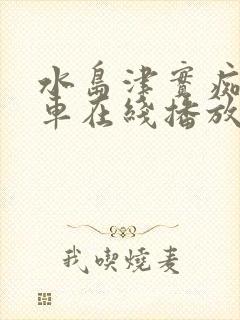 水島津實痴
車在綫播放
我喫燒麦